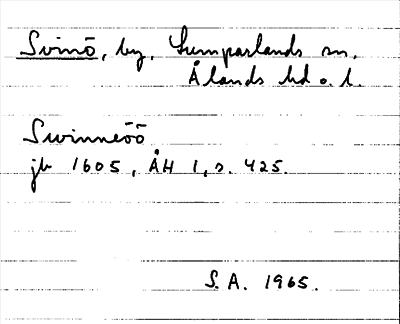 Svinö, by, Lumparlands sn,
Ålands hd o. l.
Swinneöö
jb 1605, ÅH 1, s. 425.
S. A. 1965.